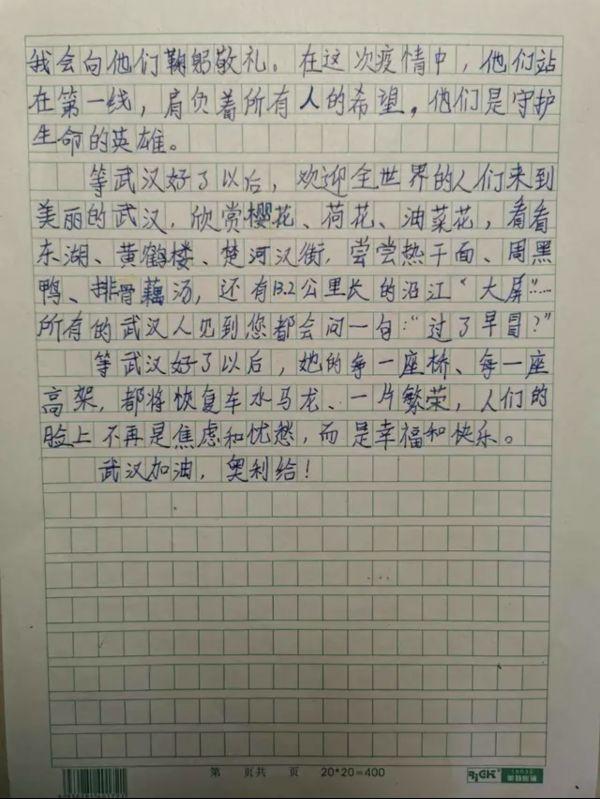 我会向他们鞠躬敬礼。在这次疫情中，他们站
在第一线，肩负着所有人的希望。他们是守护
生命的英雄。
等武汉好了以后，欢迎全世界的人们来到
美丽的武汉，欣赏樱花、荷花、油菜花，看看
东湖、黄鹤楼、楚河汉街，尝尝热干面、周黑
鸭、排骨藕汤，还有13.2公里长的沿江“大屏”……
所有的武汉人见到您都会问一句：“过了早冒？”
等武汉好了以后，她的每一座桥、每一座
高架，都将恢复车水马龙、一片繁荣，人们的
脸上不再是焦虑和忧愁，而是幸福和快乐。
武汉加油，奥利给！
第 页共 页 20*20=400